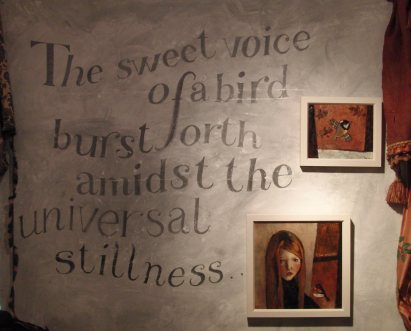 The sweet voice
of a bird
burst forth
amidst the
universal
stillness...